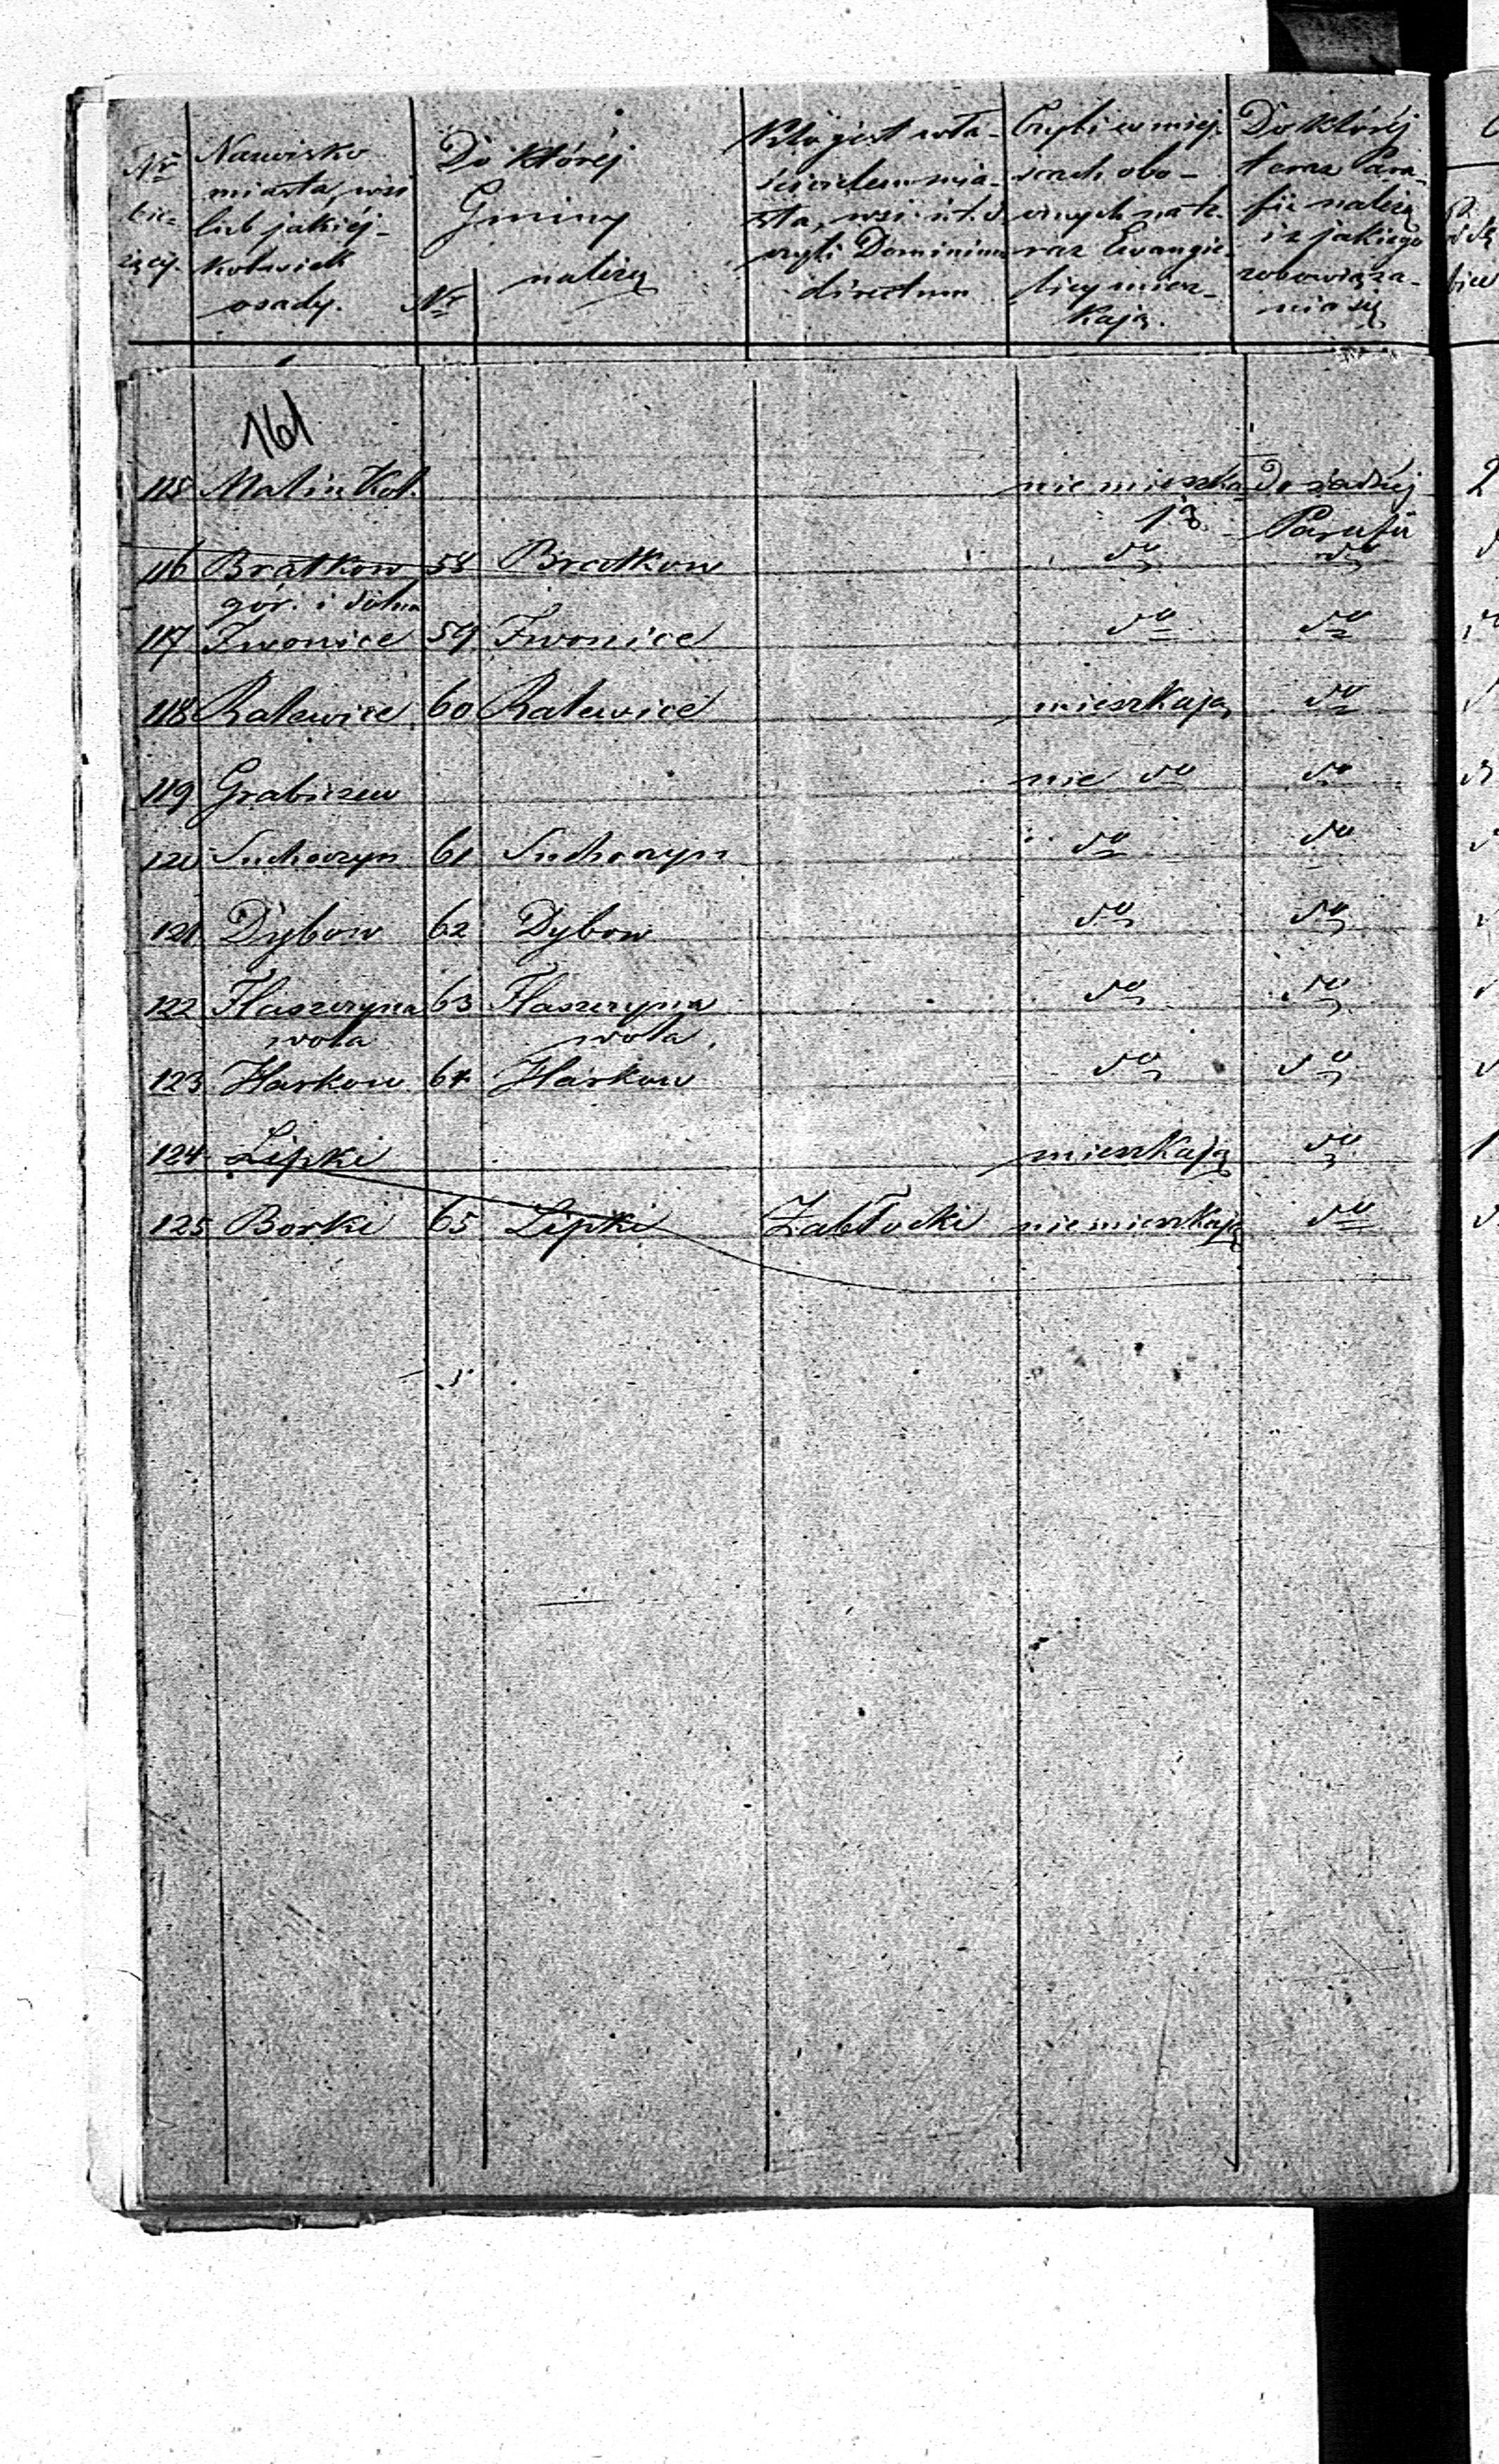 Nr bie- żący.
Nazwisko miasta, wsi lub jakiéj- kolwiek osady.
Do któréj Gminy należą
Nr
Kto jest wła- ścicielem mia- sta, wsi i t. d. czyli Dominium directum
Czyli w miej- scach obo- cznych na te- raz Ewangie- licy miesz- kają.
Do któréj teraz Para- fii należą i z jakiego zobowiąza- nia się
161
115 Malin Kol. nie mieszka- Do żadnéj
ją Parafii
116 Bratkow 58 Bratkow do do
gór. i dolna
117 Iwonice 59 Iwonice do do
118 Ralewice 60 Ralewice mieszkają do
119 Grabiszew nie do do
120 Suchoczyn 61 Suchoczyn do do
121 Dybow 62 Dybow do do
122 Flaszczyna 63 Flaszczyna do do
wola wola
123 Charkow 64 Charkow do do
124 Lipki mieszkają do
125 Borki 65 Lipki Zabłocki nie mieszkają do